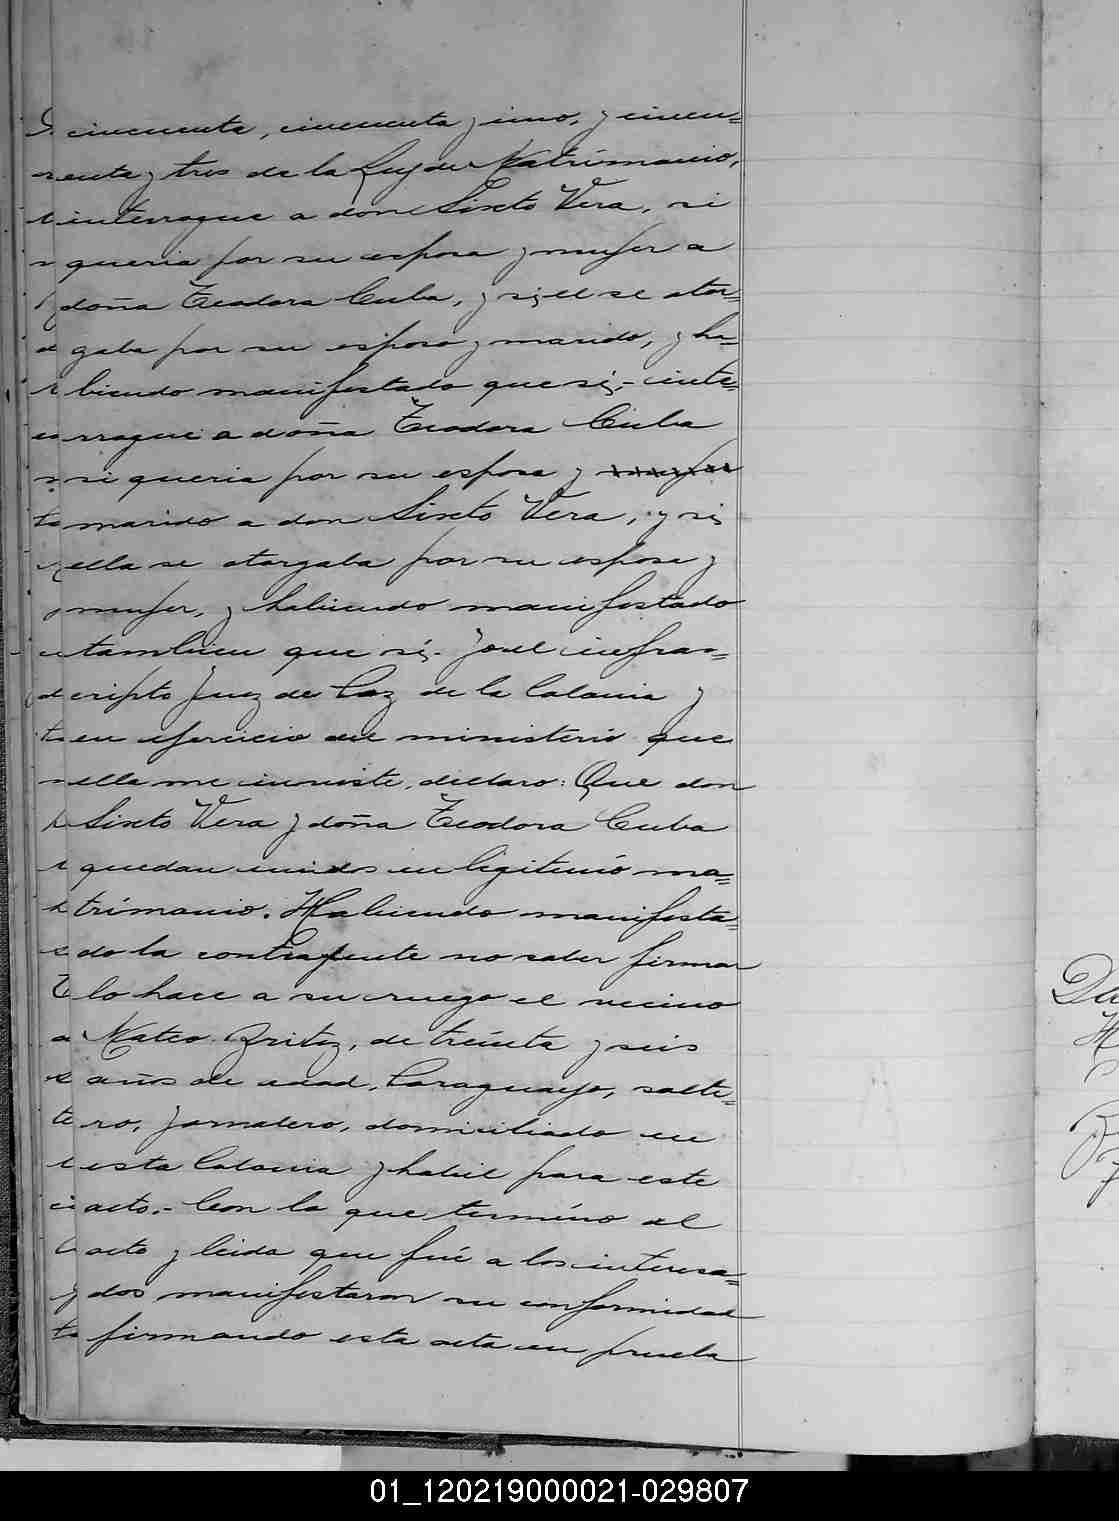 cincuenta, cincuenta y uno, y cincu=
enta y tres de la Ley de Matrimonio,
interrogue a don Sixto Vera, si
queria por su esposa y mujer a
doña Teodora Cuba, y si el se otor=
gaba por su esposo y marido, y ha=
biendo manifestado que si,- inte=
rrogué a doña Teodora Cuba
si queria por su esposo y mujer
marido a don Sixto Vera, y si
ella se otorgaba por su esposa y
mujer, y habiendo manifestado
tambien que si.- Yo el infras=
cripto Juez de Paz de la Colonia y
en ejercicio del ministerio que
ella me inviste, declaro: Que don
Sixto Vera y doña Teodora Cuba
quedan unidos en legitimo ma=
trimonio. Habiendo manifesta=
do la contrayente no saber firmar
lo hace a su ruego el vecino
Mateo Britez, de treinta y seis
años de edad, Paraguayo, solte=
ro, jornalero, domiciliado en
esta Colonia y habil para este
acto.- Con lo que termino el
acto y leida que fué a los interesa=
dos manifestaron su conformidad
firmando esta acta en prueba
01_120219000021-029807